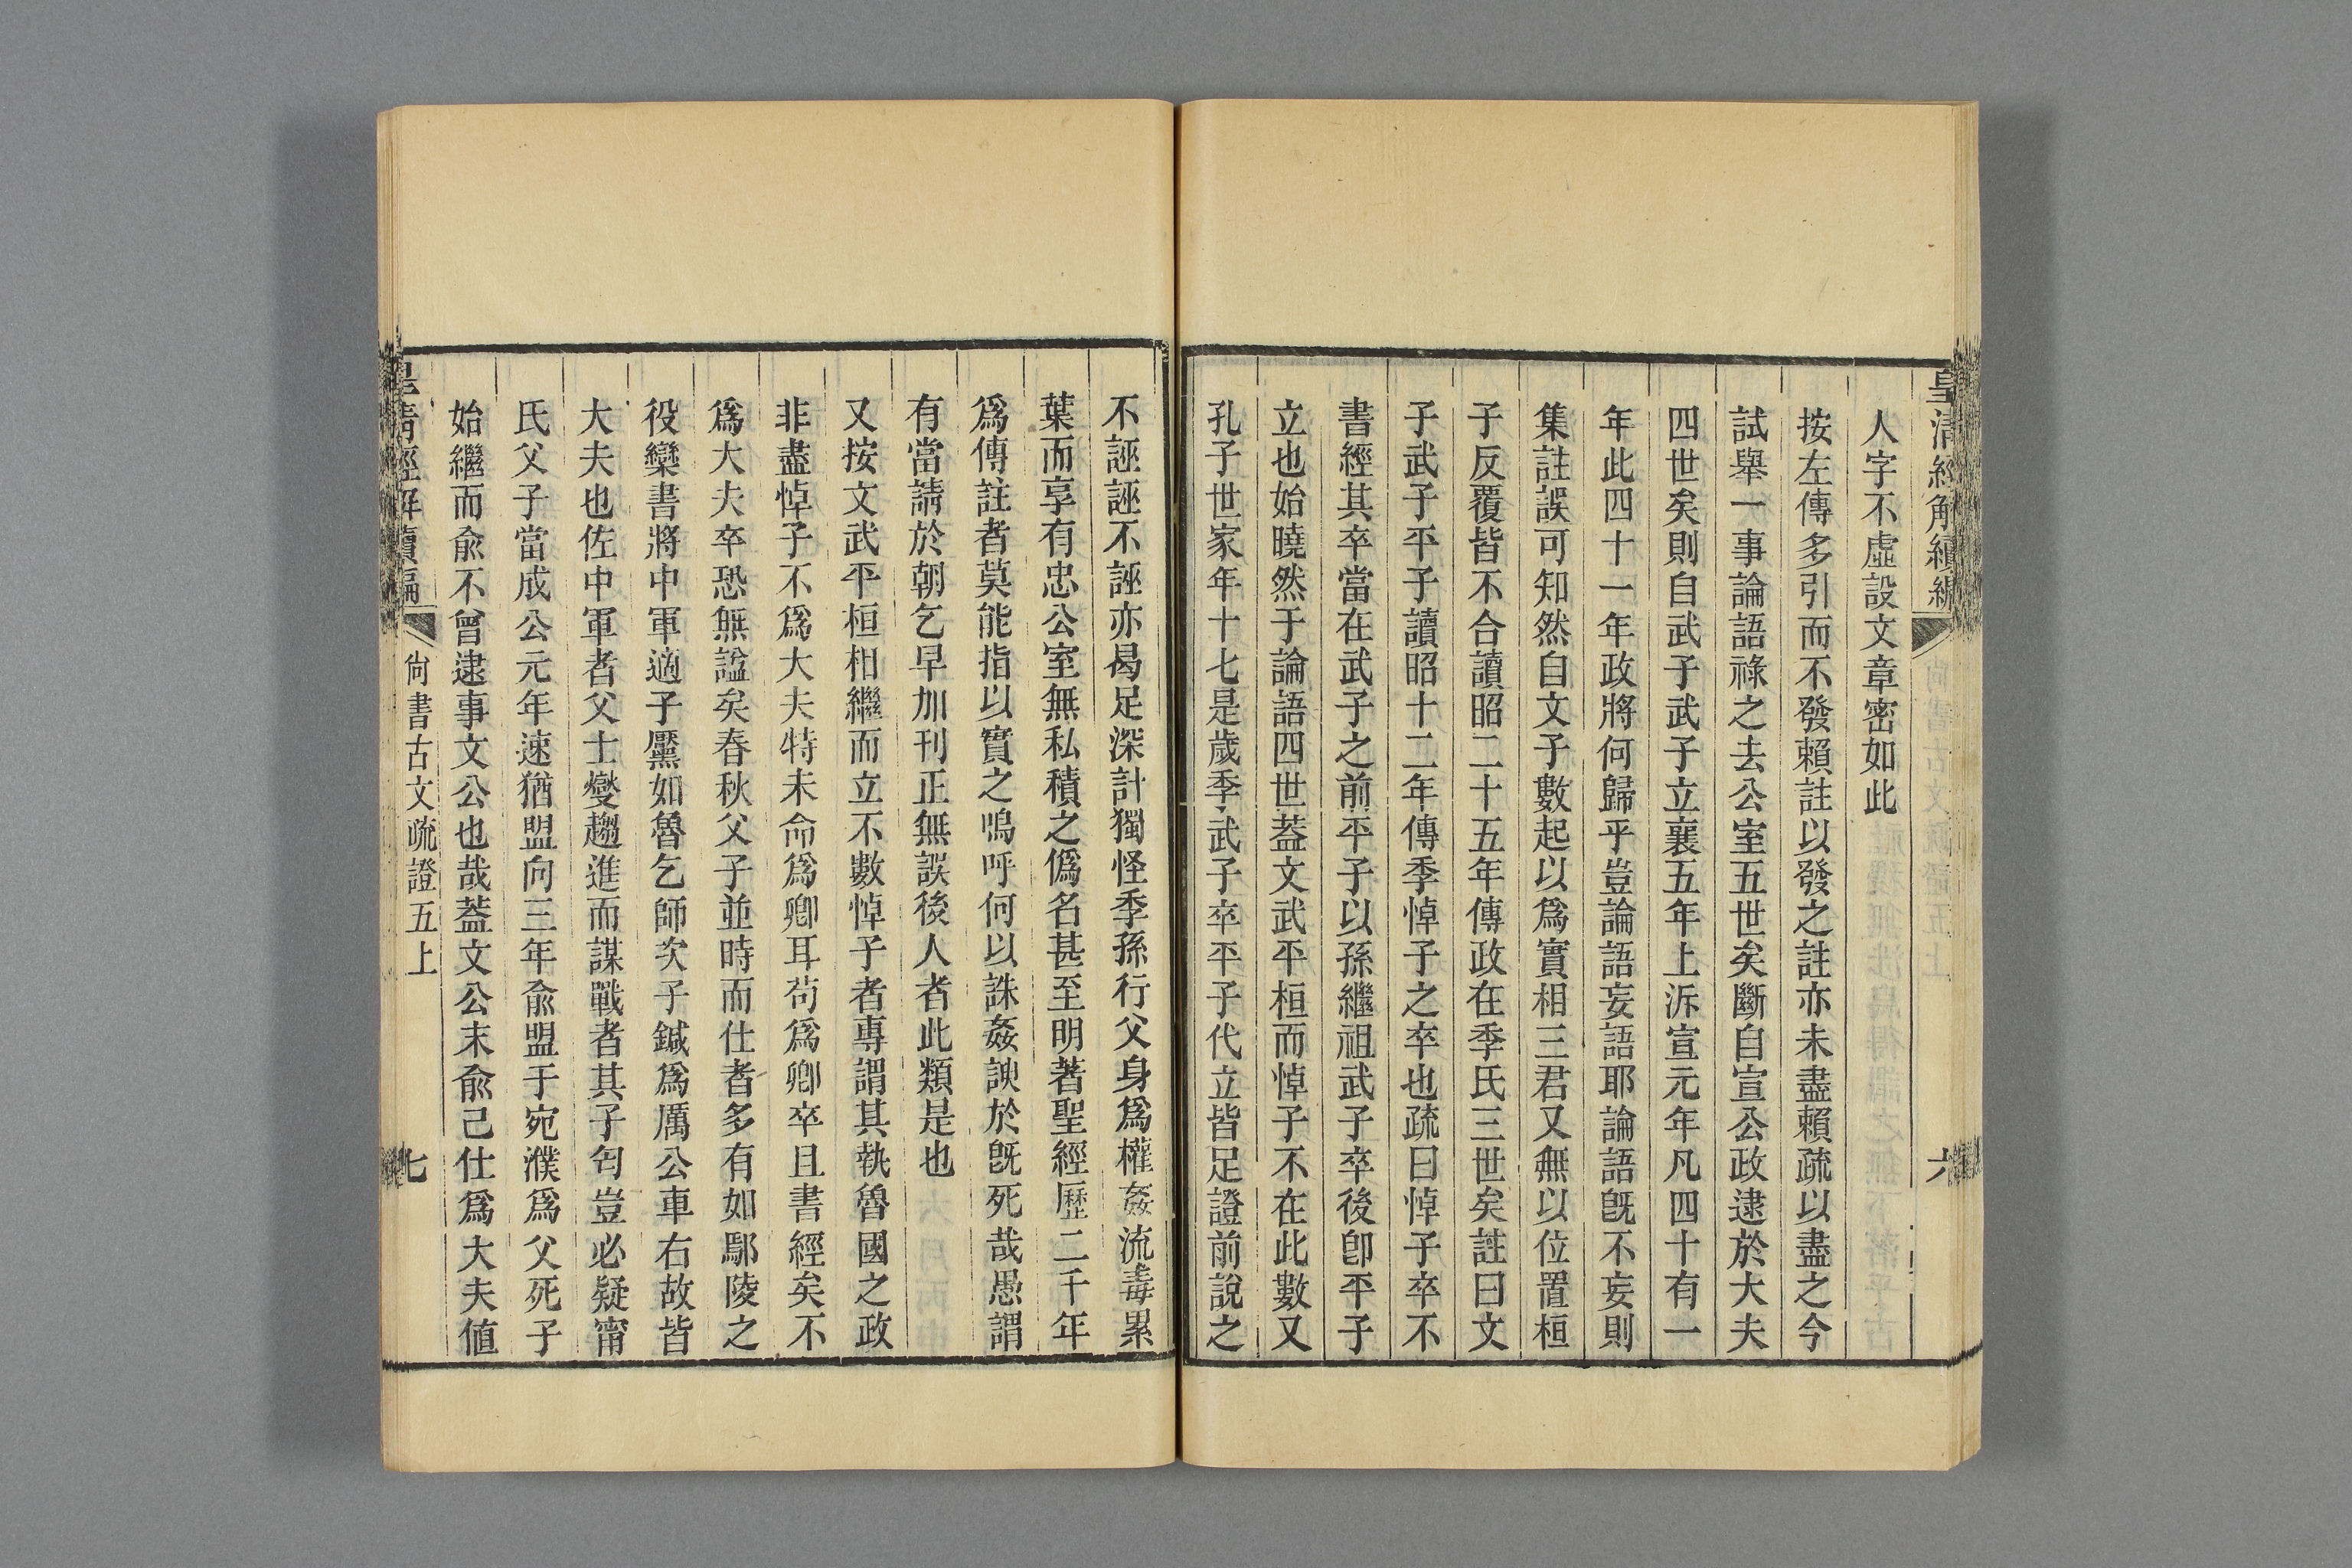 皇清經解續編
六
人字不虛設文章密如此
按左傳多引而不發賴註以發之註亦未盡賴疏以盡之今
試舉一事論語祿之去公室五世矣斷自宣公政逮於大夫
四世矣則自武子武子立襄五年上泝宣元年凡四十有一
年此四十一年政將何歸乎豈論語妄語耶論語旣不妄則
集註誤可知然自文子數起以爲實相三君又無以位置桓
子反覆皆不合讀昭二十五年傳政在季氏三世矣註曰文
子武子平子讀昭十二年傳季悼子之卒也疏曰悼子卒不
書經其卒當在武子之前平子以孫繼祖武子卒後卽平子
立也始曉然于論語四世葢文武平桓而悼子不在此數又
孔子世家年十七是歲季武子卒平子代立皆足證前說之
不誣誣不誣亦曷足深計獨怪季孫行父身爲權姦流毒累
葉而享有忠公室無私積之僞名甚至明著聖經歷二千年
爲傳註者莫能指以實之嗚呼何以誅姦諛於旣死哉愚謂
有當請於朝乞早加刊正無誤後人者此類是也
又按文武平桓相繼而立不數悼子者專謂其執魯國之政
非盡悼子不爲大夫特未命爲卿耳苟爲卿卒且書經矣不
爲大夫卒恐無諡矣春秋父子並時而仕者多有如鄢陵之
役欒書將中軍適子黶如魯乞師次子鍼爲厲公車右故皆
大夫也佐中軍者父士燮趨進而謀戰者其子匄豈必疑甯
氏父子當成公元年速猶盟向三年俞盟于宛濮爲父死子
始繼而俞不曾逮事文公也哉葢文公末俞己仕爲大夫値
皇清經解續編
尙書古文疏證五上
七